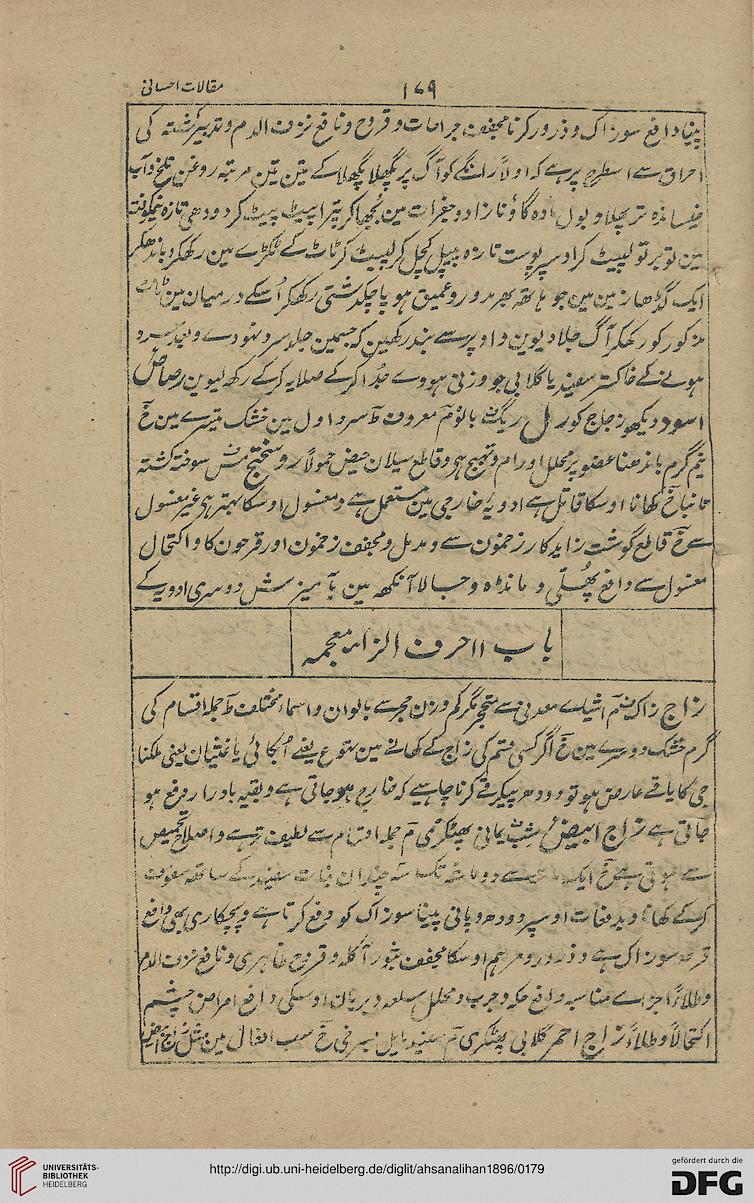 مقالات احسانی
۱۷۹
پینا دافع سوزاک و ذرور کرنا مجفف جراحات و قروح و نافع نزف الدم و تدبیر کشتہ کی
احراق سے اسطرح پر ہے کہ اولاً رانگے کو آگ پر پگھلا پگھلا کے تین تین مرتبہ روغن تلخ و آب
خیساندہ تر پھلا و بول مادہ گاؤ تازا و دوغ مین بجھا کر پترا پیٹ پیٹ کر دودھی تازہ نیمکوفتہ
مین تو بر تو لپیٹ کر اوسپر پوست تازہ پیپل کچل کر لپیٹ کر ٹاٹ کے ٹکڑے مین رکھکر و باندھکر
ایک گڑھا زمین مین جو ہاتھ بھر مدور و عمیق ہو پاچکدشتی رکھکر اسکے درمیان مین ٹاٹ
مذکور کو رکھکر آگ جلا دیوین و اوپر سے بند رکھین کہ جسمین جلد سرد نہووے و بعد سرد
ہونے کے خاکستر سفید یا گلابی جو وزنی ہووے جدا کر کے صلایہ کر کے رکھ لیوین رصاص
اسود دیکھو زجاج کور رمل ریگ بالو معروف ط سرد اول مین خشک تیسرے مین خ
نیم گرم باندھنا عضو پر محلل اورام و تہیج ہے و قاطع سیلان حیض حمولاً روسختج مس سوختہ کشتہ
تانبا خ کھانا اوسکا قاتل ہے ادویہ خارجی مین مستعمل ہے و مغسول اوسکا بہتر ہے غیر مغسول
سے خ قاطع گوشت زاید کا زخمون سے و مدمل و مجفف زخمون اور قرحون کا و اکتحال
مغسول سے دافع پھلی و مانڈہ و جالا آنکھ مین بآمیزش دوسری ادویہ کے
باب ۱۱ حرف الزاء معجمہ
زاج زاک اشیاے معدنی سے متحجر مگر کم وزن حجر سے بالوان و اسماء مختلف ط جملہ اقسام کی
گرم خشک دوسرے مین خ اگر کسی قسم کی زاج کے کھانے مین تہوع یعنے ابکائی یا غثیان یعنی ملکنا
جی کا یا قے عارض ہو تو دودھ پیکر قے کرنا چاہیے کہ خارج ہو جاتی ہے و بقیہ بادرار دفع ہو
جاتی ہے زاج ابیض شب یمانی پھٹکری جملہ اقسام سے لطیف تر ہے و اصلاح تحمیص
سے ہوتی ہے خ ایک ماشہ سے دو ماشہ تک سہ چندان نبات سفید کے ساتھ سفوف
کر کے کھانا و بدفعات اوسپر دودھ و پانی پینا سوزاک کو دفع کرتا ہے و پچکاری بھی دافع
قرحہ سوزاک ہے و ذرور و مرہم اوسکا مجفف بثور آکلہ و قروح ظاہری و نافع نزف الدم
و طلاءً اجزاے مناسبہ دافع حکہ و جرب و محلل سلعہ و بریان اوسکی دافع امراض چشم
اکتحالاً و طلاءً زاج احمر گلابی پھٹکری سفید مایل بسرخی خ سب افعال مین مثل زاج ابیض
UNIVERSITÄTS-
BIBLIOTHEK
HEIDELBERG
http://digi.ub.uni-heidelberg.de/diglit/ahsanalihan1896/0179
gefördert durch die
DFG